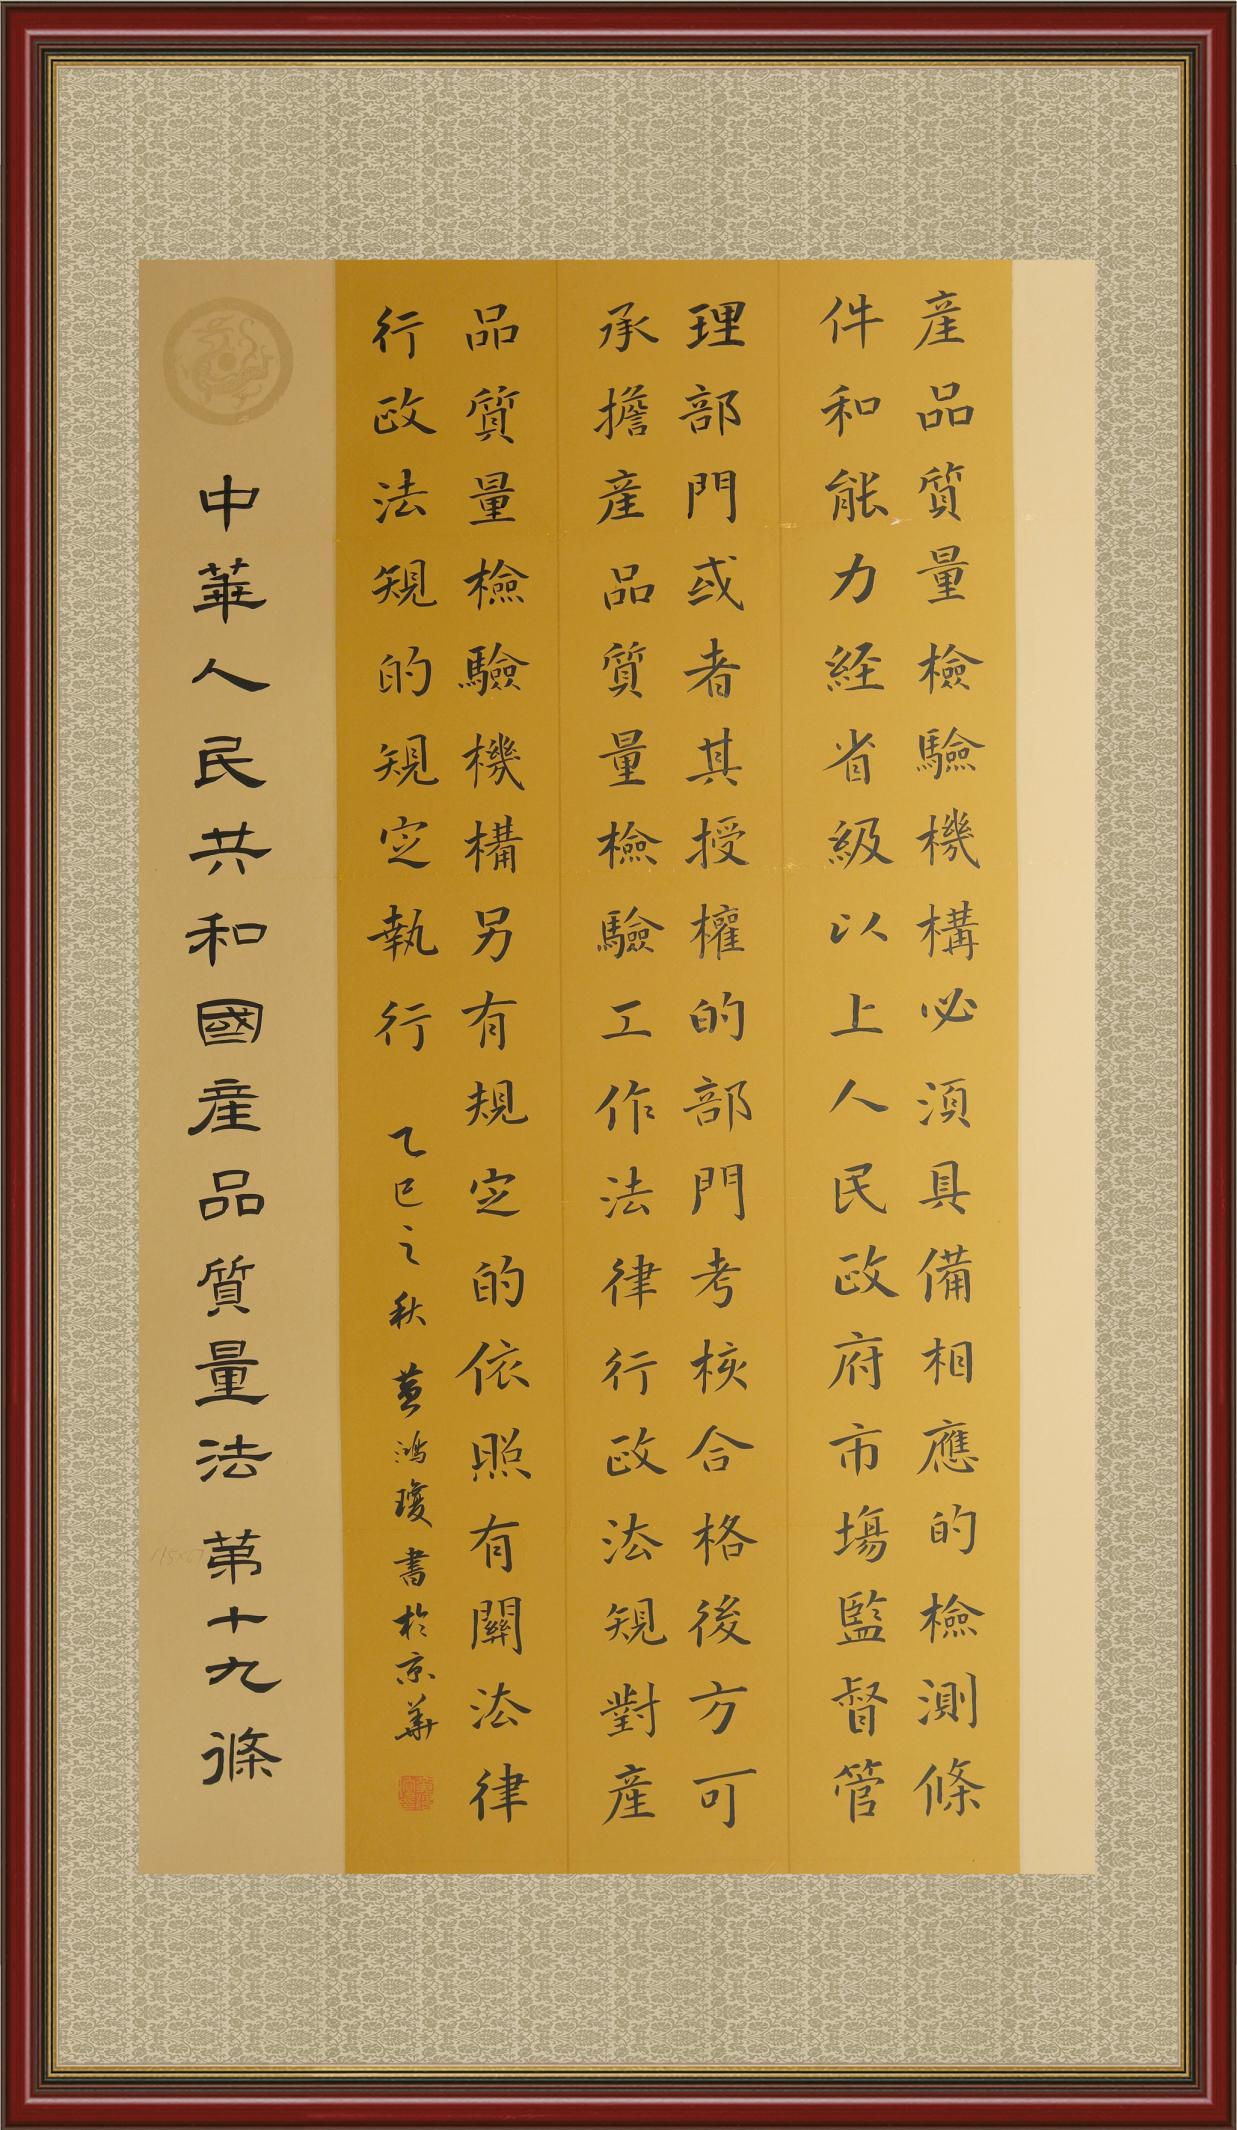 産品質量檢驗機構必須具備相應的檢測條
件和能力経省級以上人民政府市場監督管
理部門或者其授權的部門考核合格後方可
承擔産品質量檢驗工作法律行政法規對産
品質量檢驗機構另有規定的依照有關法律
行政法規的規定執行
乙巳之秋 黃鴻瓊書於京華
中華人民共和國産品質量法 第十九條